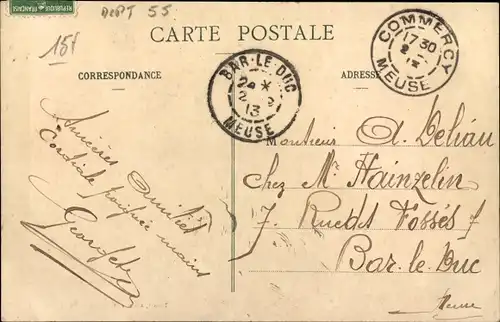 REPUBLIQUE FRANÇAISE
DEPT 55
15f
CARTE POSTALE
CORRESPONDANCE
ADRESSE
BAR-LE-DUC
24 *
2 - 9
13
MEUSE
COMMERCY
17 30
MEUSE
Sincères Amitiés
Cordiale poignée mains
Monsieur A. Delian
chez Mr Hainzelin
7. Rue des Fossés
Bar-le-Duc
Meuse